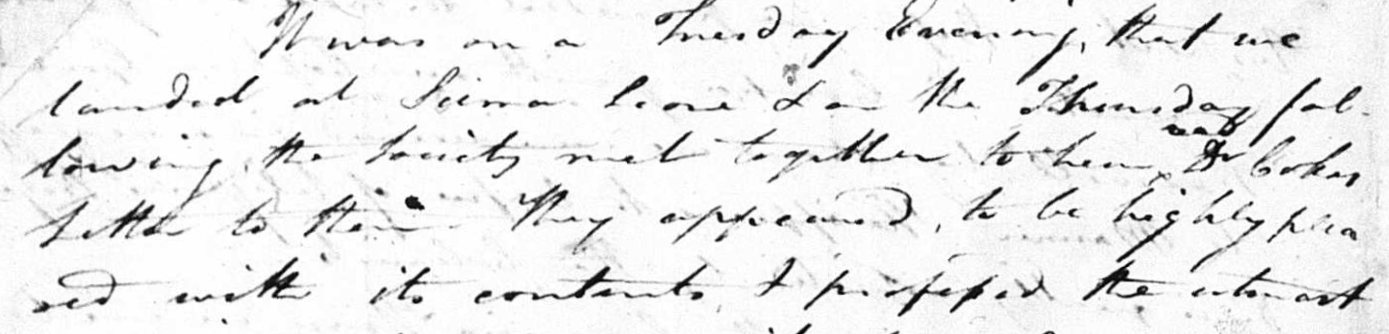 It was on a Tuesday Evening, that we
landed at Sierra Leone & on the Thursday fol-
lowing the Society met together to hear read Dr Cokes
Letter to them. They appeared, to be highly plea
sed with its contents. I professed the utmost